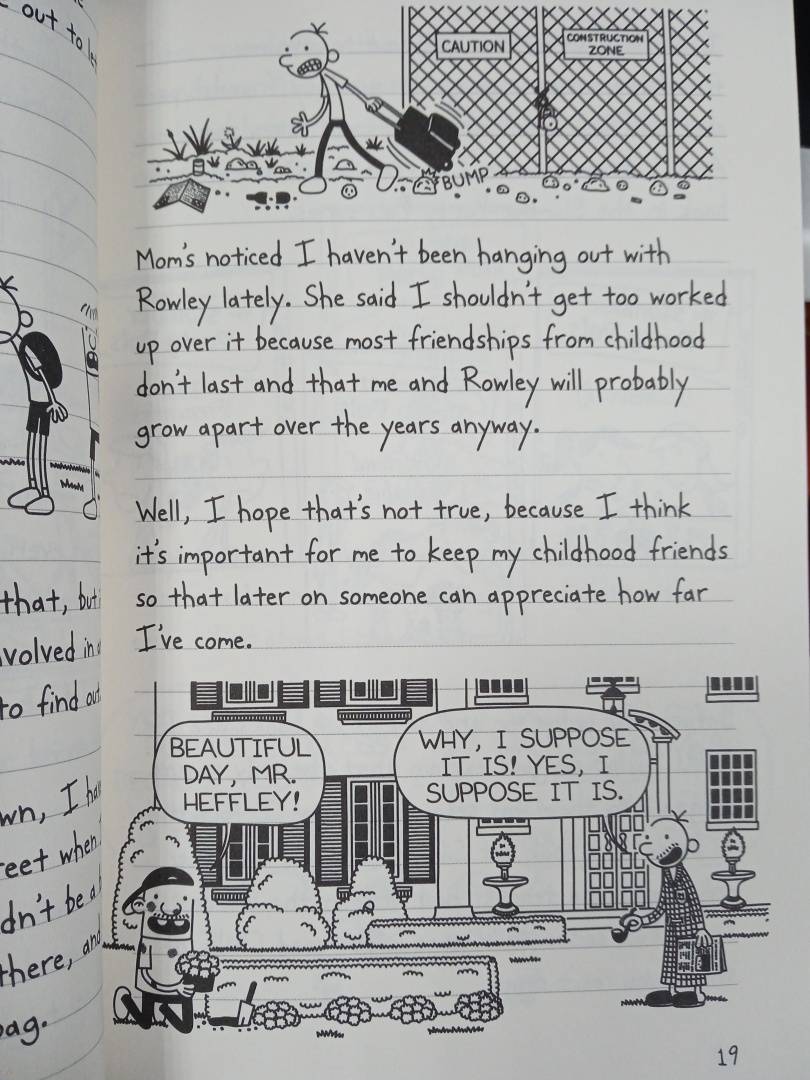 out to
that, but
volved in
to find out
wn, I
reet when
dn't be a
there, and
bag.
CAUTION
CONSTRUCTION
ZONE
BUMP
Mom's noticed I haven't been hanging out with
Rowley lately. She said I shouldn't get too worked
up over it because most friendships from childhood
don't last and that me and Rowley will probably
grow apart over the years anyway.
Well, I hope that's not true, because I think
it's important for me to keep my childhood friends
so that later on someone can appreciate how far
I've come.
BEAUTIFUL
DAY, MR.
HEFFLEY!
WHY, I SUPPOSE
IT IS! YES, I
SUPPOSE IT IS.
19